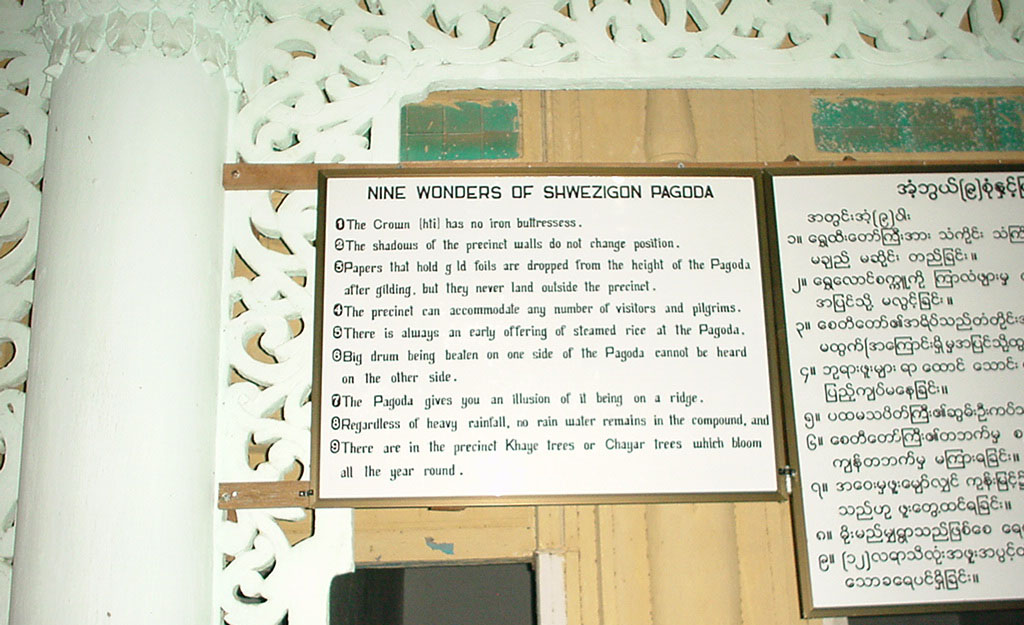 NINE WONDERS OF SHWEZIGON PAGODA
1 The Crown (hti) has no iron buttressess.
2 The shadows of the precinct walls do not change position.
3 Papers that hold g ld foils are dropped from the height of the Pagoda
after gilding, but they never land outside the precinct.
4 The precinct can accommodate any number of visitors and pilgrims.
5 There is always an early offering of steamed rice at the Pagoda.
6 Big drum being beaten on one side of the Pagoda cannot be heard
on the other side.
7 The Pagoda gives you an illusion of it being on a ridge.
8 Regardless of heavy rainfall, no rain water remains in the compound, and
9 There are in the precinct Khaye trees or Chayar trees which bloom
all the year round.
အံ့ဘွယ်(၉)စုံနှင့်
အတွင်းအံ့(၉)ပါး
၁။ ရွှေထီးတော်ကြီးအား သံကိုင်း
မချည် မဆိုင်း တည်ခြင်း။
၂။ ရွှေလောင်စက္ကူကို ကြာလံဖျားမှ
အပြင်သို့ မလွင့်ခြင်း။
၃။ စေတီတော်၏အရိပ်သည်တံတိုင်း
မထွက်(အကြောင်းရှိမှအပြင်သို့
၄။ ဘုရားဖူးများ ရာ ထောင် သောင်း
ပြည့်ကျပ်မနေခြင်း။
၅။ ပထမသပိတ်ကြီး၏ဆွမ်းဦးကပ်
၆။ စေတီတော်ကြီး၏တဘက်မှ
ကျန်တဘက်မှ မကြားရခြင်း။
၇။ အဝေးမှဖူးမျှော်လျှင် ကုန်းမြင့်
သည်ဟု ဖူးတွေ့ထင်ရခြင်း။
၈။ မိုးမည်မျှရွာသည်ဖြစ်စေ
၉။ (၁၂)လရာသီလုံးအဖူးအပွင့်
သောခရေပင်ရှိခြင်း။